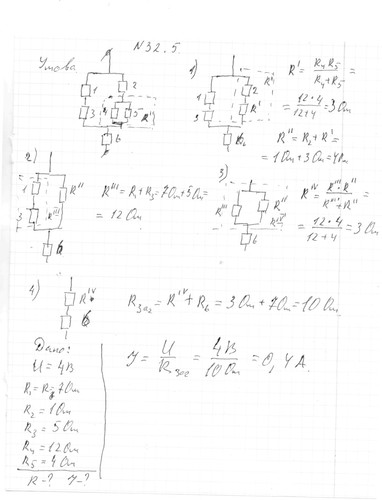 N 32.5.
Умова
1
2
3
4
5
R'
6
1)
1
2
3
R'
R''
R' = R₄R₅ / R₄+R₅ =
= 12·4 / 12+4 = 3 Ом
R'' = R₂+R' =
= 1 Ом+3 Ом=4 Ом
2)
1
3
R''
R'''
6
R''' = R₁+R₃=7 Ом+5 Ом=
= 12 Ом
3)
R'''
R''
R^IV
6
R^IV = R'''·R'' / R'''+R'' =
= 12·4 / 12+4 = 3 Ом
4)
R^IV
6
Rзаг = R^IV + R₆ = 3 Ом + 7 Ом = 10 Ом.
Дано:
U = 4В
R₁=R₆=7 Ом
R₂ = 1 Ом
R₃ = 5 Ом
R₄ = 12 Ом
R₅ = 4 Ом
R-? У-?
У = U / Rзаг = 4В / 10 Ом = 0,4 А.